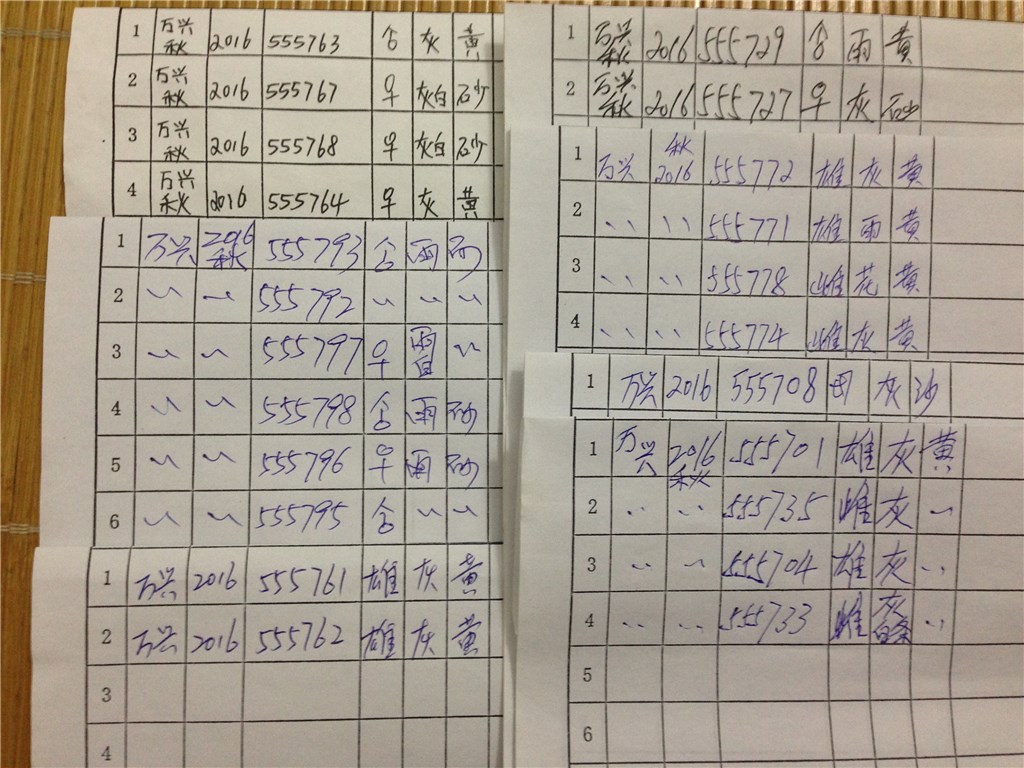 1 万兴秋 2016 555763 合 灰 黄
2 万兴秋 2016 555767 早 灰白 砂
3 万兴秋 2016 555768 早 灰白 砂
4 万兴秋 2016 555764 早 灰 黄
1 万兴 2016秋 555793 合 雨 砂
2 〃 〃 555792 〃 〃 〃
3 〃 〃 555797 早 雨白 〃
4 〃 〃 555798 合 雨 砂
5 〃 〃 555796 早 雨 砂
6 〃 〃 555795 合 〃 〃
1 万兴 2016 555761 雄 灰 黄
2 万兴 2016 555762 雄 灰 黄
3
4
1 万兴秋 2016 555729 合 雨 黄
2 万兴秋 2016 555727 早 灰 砂
1 万兴 秋2016 555772 雄 灰 黄
2 〃 〃 555771 雄 雨 黄
3 〃 〃 555778 雌 花 黄
4 〃 〃 555774 雌 灰 黄
1 万兴 2016 555708 灰 沙
1 万兴 2016秋 555701 雄 灰 黄
2 〃 〃 555735 雌 灰 〃
3 〃 〃 555704 雄 灰 〃
4 〃 〃 555733 雌 灰白条 〃
5
6